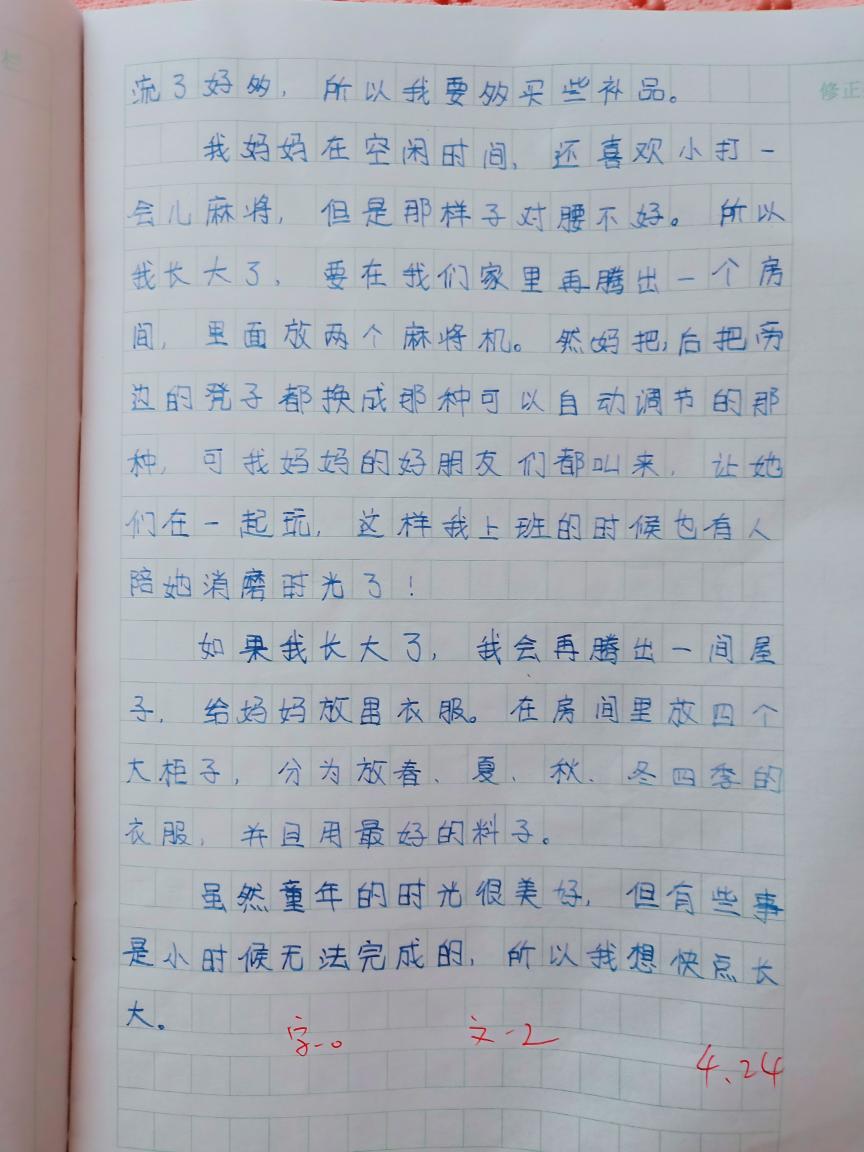 流了好多，所以我要多买些补品。
我妈妈在空闲时间，还喜欢小打一
会儿麻将，但是那样子对腰不好。所以
我长大了，要在我们家里再腾出一个房
间，里面放两个麻将机。然妈把，后把旁
边的凳子都换成那种可以自动调节的那
种，可我妈妈的好朋友们都叫来，让她
们在一起玩，这样我上班的时候也有人
陪她消磨时光了！
如果我长大了，我会再腾出一间屋
子，给妈妈放置衣服。在房间里放四个
大柜子，分为放春、夏、秋、冬四季的
衣服，并且用最好的料子。
虽然童年的时光很美好，但有些事
是小时候无法完成的，所以我想快点长
大。
字-0 文-2
4.24
修正
栏